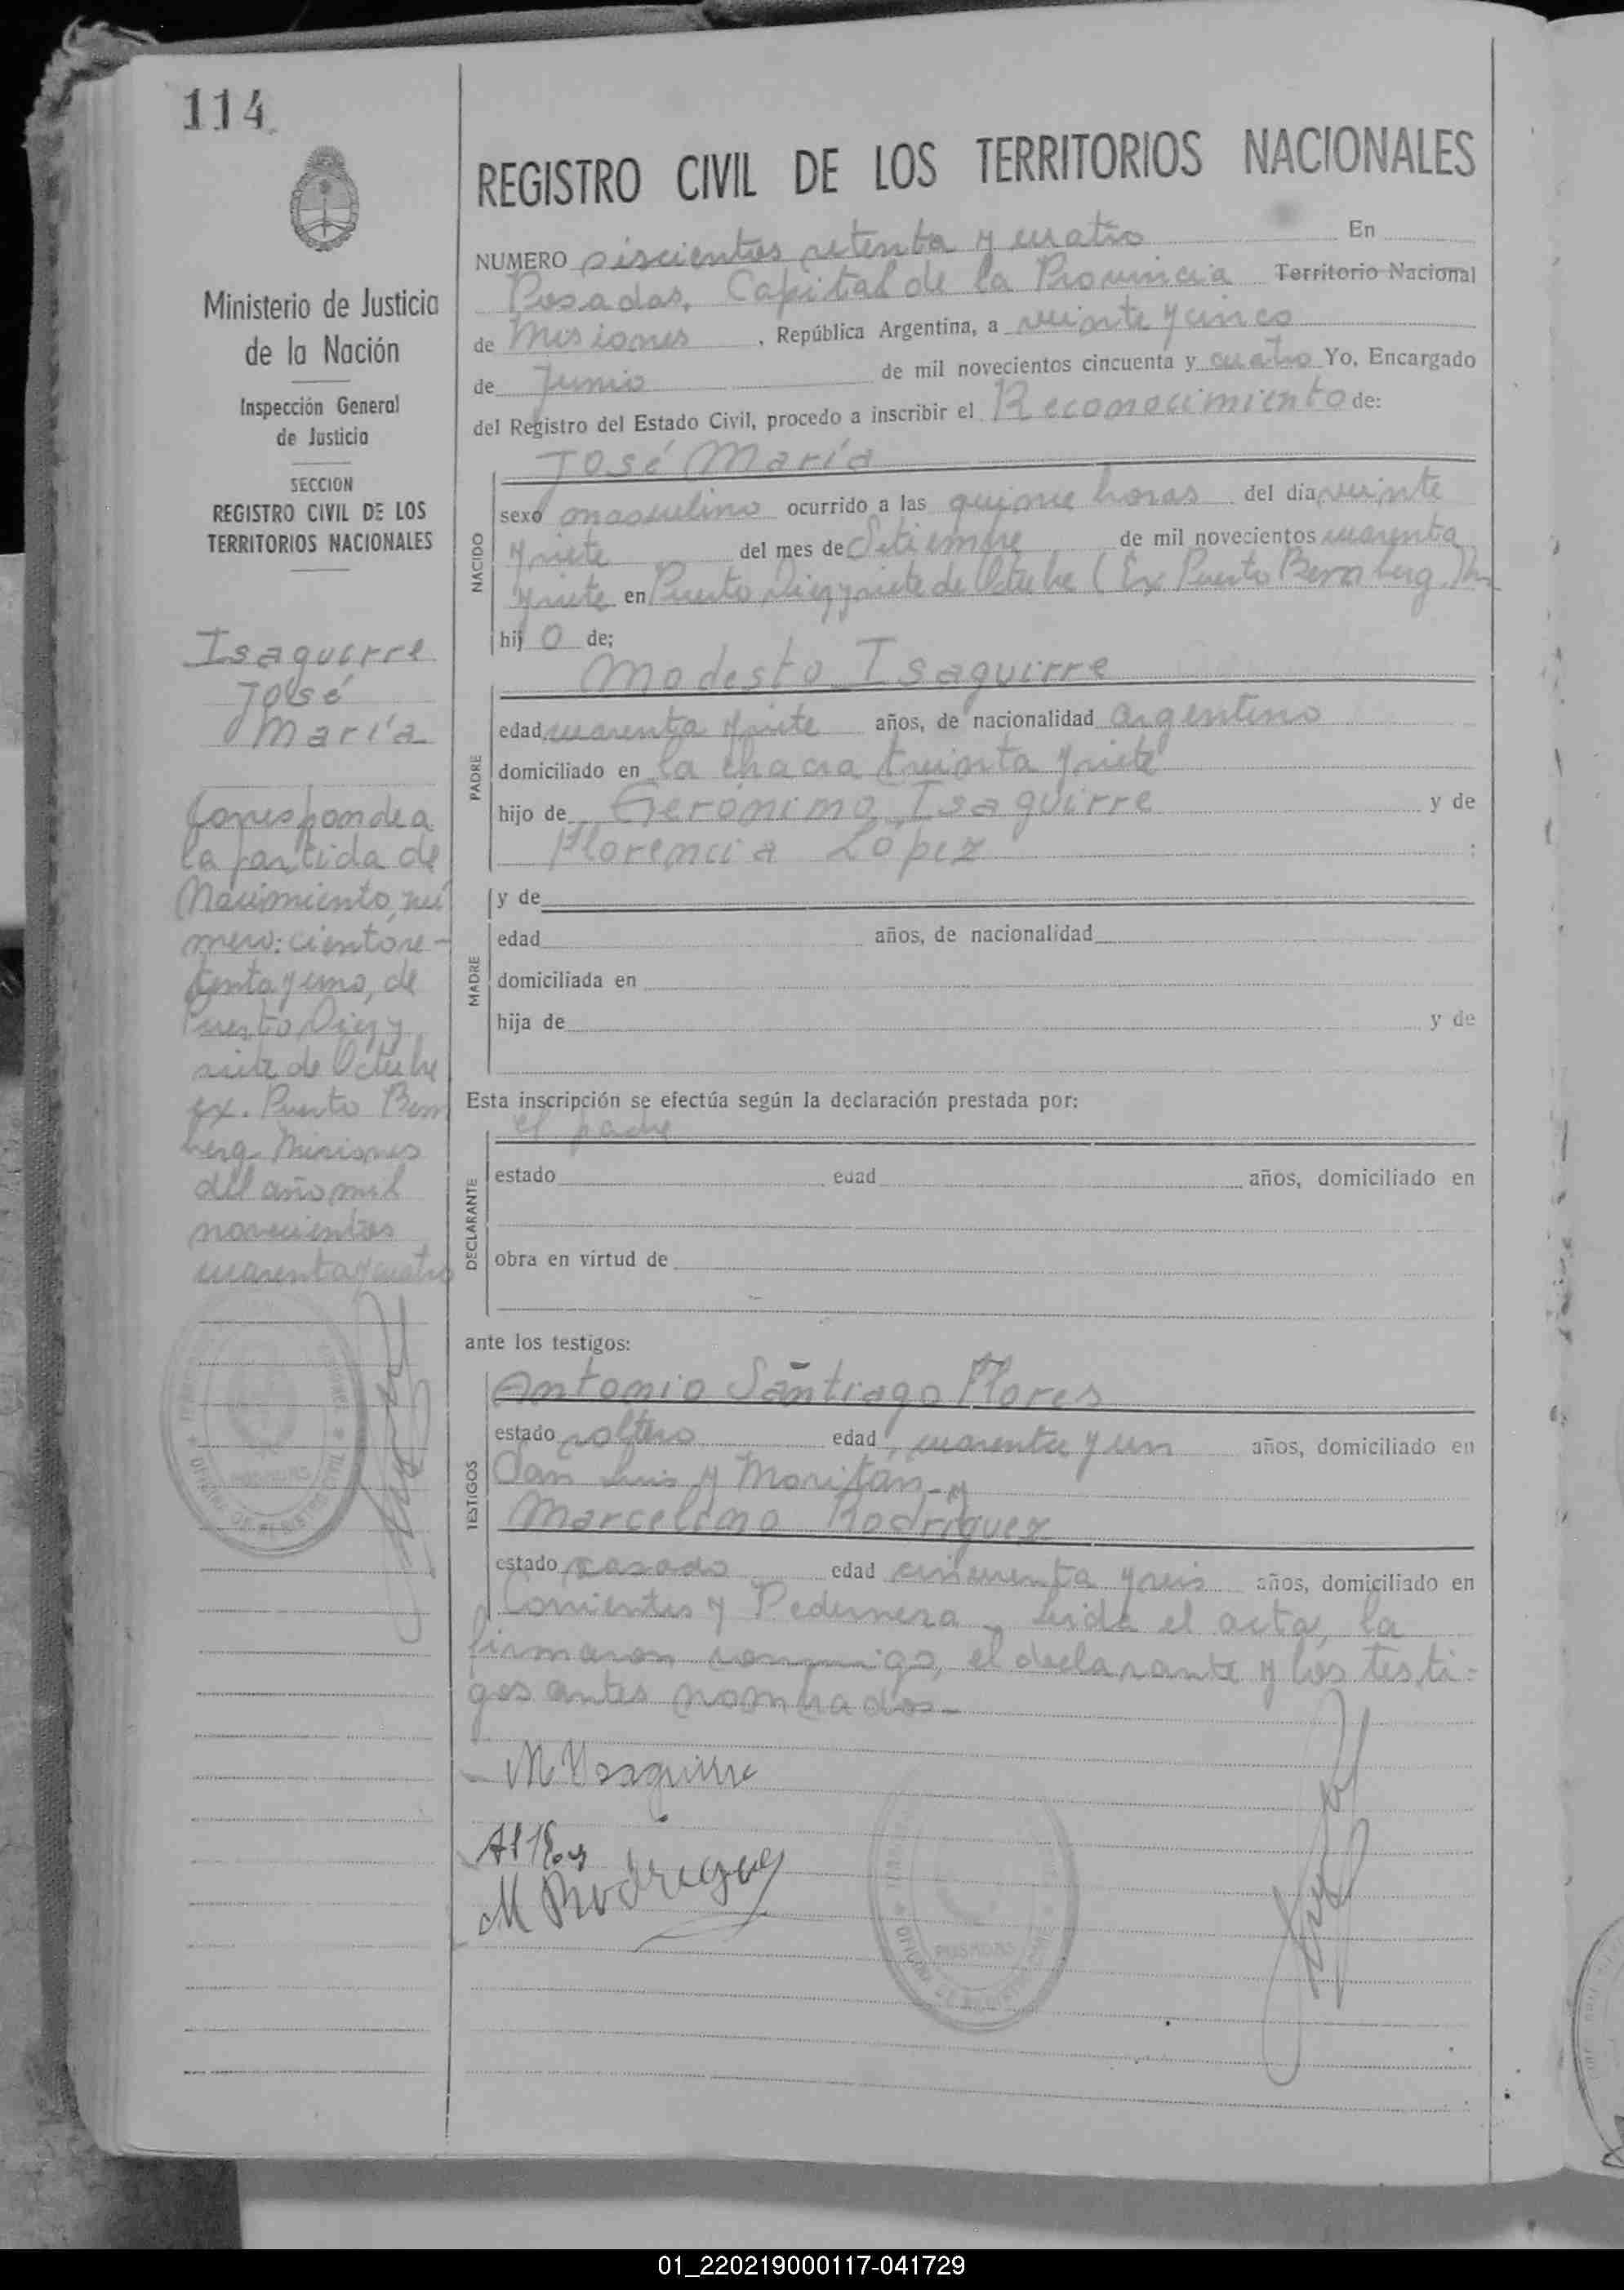 114
REGISTRO CIVIL DE LOS TERRITORIOS NACIONALES
Ministerio de Justicia
de la Nación
Inspección General
de Justicia
SECCION
REGISTRO CIVIL DE LOS
TERRITORIOS NACIONALES
Isaguirre
José
María
Corresponde a
la partida de
Nacimiento, nú
mero: ciento se-
tenta y uno, de
Puerto Diez y
siete de Octubre
ex. Puerto Bem
berg. Misiones
del año mil
novecientos
cuarenta y cuatro
NUMERO seiscientos setenta y cuatro En
Posadas, Capital de la Provincia Territorio Nacional
de Misiones, República Argentina, a veinte y cinco
de Junio de mil novecientos cincuenta y cuatro Yo, Encargado
del Registro del Estado Civil, procedo a inscribir el Reconocimiento de:
José María
NACIDO
sexo masculino ocurrido a las quince horas del dia veinte
y siete del mes de Setiembre de mil novecientos cuarenta
y siete en Puerto Diez y siete de Octubre (Ex Puerto Bemberg)
hijo de;
Modesto Isaguirre
PADRE
edad cuarenta y siete años, de nacionalidad argentino
domiciliado en la chacra treinta y siete
hijo de Gerónimo Isaguirre y de
Florencia López ;
MADRE
y de
edad años, de nacionalidad
domiciliada en
hija de y de
Esta inscripción se efectúa según la declaración prestada por:
el padre
DECLARANTE
estado edad años, domiciliado en
obra en virtud de
ante los testigos:
TESTIGOS
Antonio Santiago Flores
estado soltero edad cuarenta y un años, domiciliado en
San Luis y Moritán - y
Marcelino Rodríguez
estado casado edad cincuenta y seis años, domiciliado en
Corrientes y Pedernera - Leida el acta, la
firmaron conmigo, el declarante y los testi-
gos antes nombrados-
M Ysaguirre
M Rodriguez
POSADAS
01_220219000117-041729